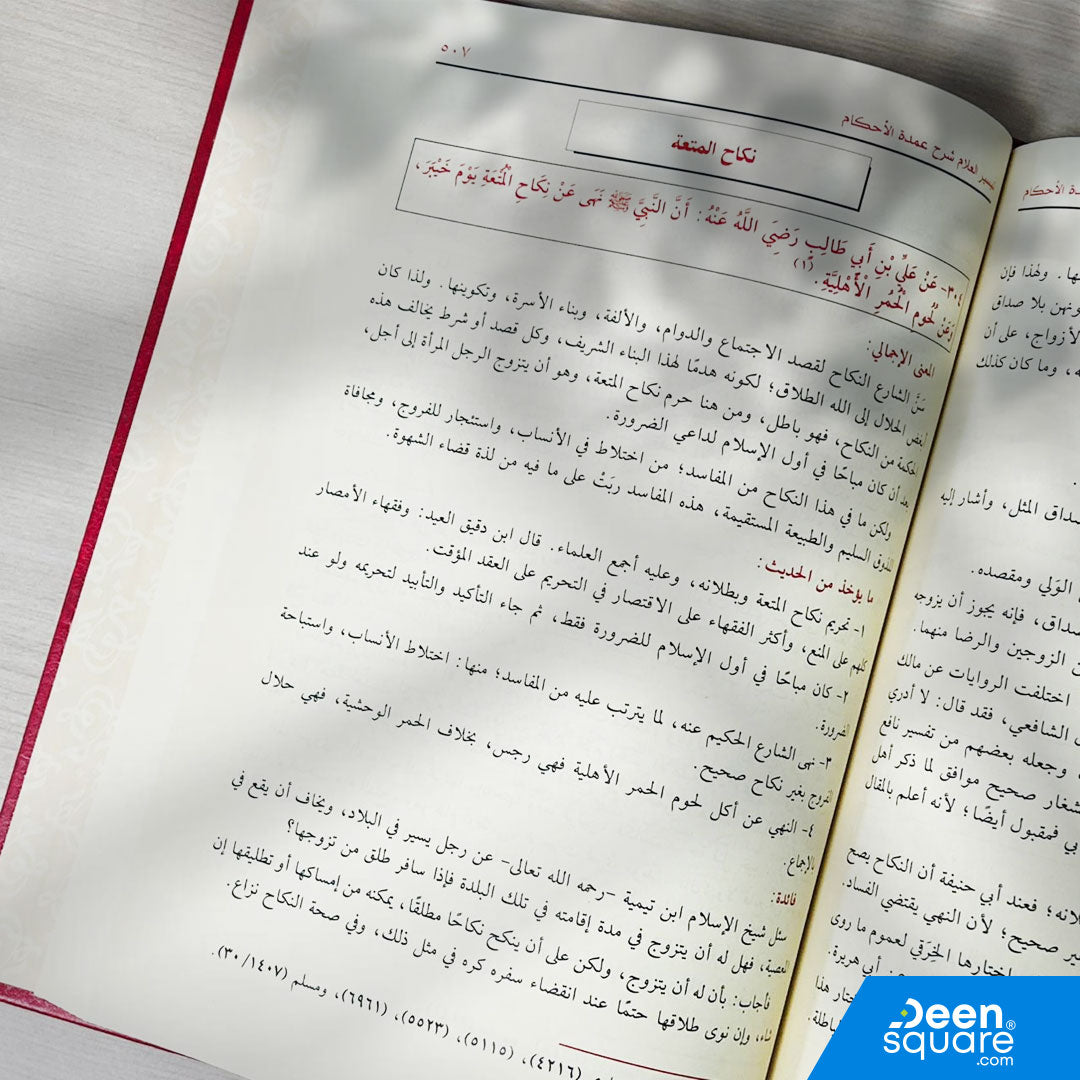 ٥٠٧
تيسير العلام شرح عمدة الأحكام
نكاح المتعة
٣٠٤- عَنْ عَلِيِّ بْنِ أَبِي طَالِبٍ رَضِيَ اللَّهُ عَنْهُ: أَنَّ النَّبِيَّ ﷺ نَهَى عَنْ نِكَاحِ الْمُتْعَةِ يَوْمَ خَيْبَرَ،
وَعَنْ لُحُومِ الْحُمُرِ الْأَهْلِيَّةِ.(١)
المعنى الإجمالي:
سَنَّ الشارع النكاح لقصد الاجتماع والدوام، والألفة، وبناء الأسرة، وتكوينها. ولذا كان
أبغض الحلال إلى الله الطلاق؛ لكونه هدمًا لهذا البناء الشريف، وكل قصد أو شرط يخالف هذه
الحكمة من النكاح، فهو باطل، ومن هنا حرم نكاح المتعة، وهو أن يتزوج الرجل المرأة إلى أجل،
بعد أن كان مباحًا في أول الإسلام لداعي الضرورة.
ولكن ما في هذا النكاح من المفاسد؛ من اختلاط في الأنساب، واستئجار للفروج، ومجافاة
للذوق السليم والطبيعة المستقيمة، هذه المفاسد ربَتْ على ما فيه من لذة قضاء الشهوة.
ما يؤخذ من الحديث:
١- تحريم نكاح المتعة وبطلانه، وعليه أجمع العلماء. قال ابن دقيق العيد: وفقهاء الأمصار
كلهم على المنع، وأكثر الفقهاء على الاقتصار في التحريم على العقد المؤقت.
٢- كان مباحًا في أول الإسلام للضرورة فقط، ثم جاء التأكيد والتأبيد لتحريمه ولو عند
الضرورة.
٣- نهى الشارع الحكيم عنه، لما يترتب عليه من المفاسد؛ منها: اختلاط الأنساب، واستباحة
الفروج بغير نكاح صحيح.
٤- النهي عن أكل لحوم الحمر الأهلية فهي رجس، بخلاف الحمر الوحشية، فهي حلال
بالإجماع.
فائدة:
سئل شيخ الإسلام ابن تيمية -رحمه الله تعالى- عن رجل يسير في البلاد، ويخاف أن يقع في
المعصية، فهل له أن يتزوج في مدة إقامته في تلك البلدة فإذا سافر طلق من تزوجها؟
فأجاب: بأن له أن يتزوج، ولكن على أن ينكح نكاحًا مطلقًا، يمكنه من إمساكها أو تطليقها إن
شاء، وإن نوى طلاقها حتمًا عند انقضاء سفره كره في مثل ذلك، وفي صحة النكاح نزاع.
(٤٢١٦)، (٥١١٥)، (٥٥٢٣)، (٦٩٦١)، ومسلم (٣٠/١٤٠٧).
الأحكام
. ولهذا فإن
بلا صداق
الأزواج، على أن
، وما كان كذلك
المثل، وأشار إليه
الوَلي ومقصده.
، فإنه يجوز أن يزوجه
الزوجين والرضا منهما.
اختلفت الروايات عن مالك
الشافعي، فقد قال: لا أدري
وجعله بعضهم من تفسير نافع
صحيح موافق لما ذكر أهل
فمقبول أيضًا؛ لأنه أعلم بالمقال
؛ فعند أبي حنيفة أن النكاح يصح
صحيح؛ لأن النهي يقتضي الفساد.
اختارها الخِرَقي لعموم ما روى
أبي هريرة.
هذا
Deen
square®
.com